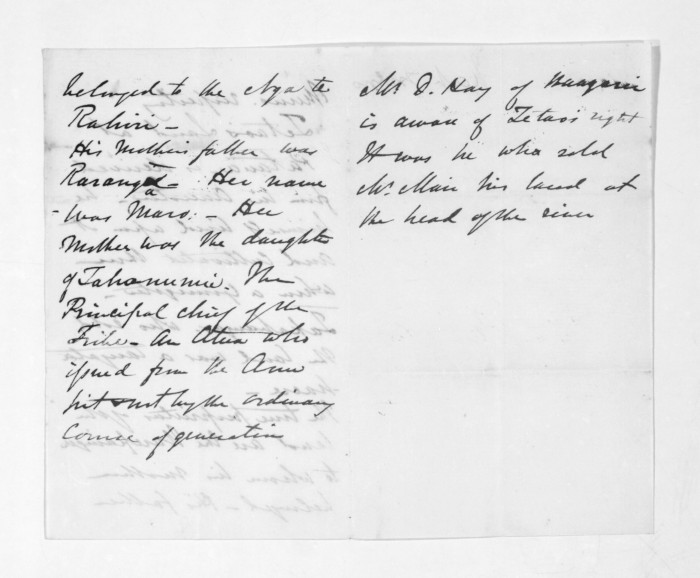 belonged to the Nga te
Rahiri -
His Mothers father was
Raranga - Her name
- was Maro. - Her
Mother was the daughter
of Tahanunui. The
Principal chief of the
Tribe - An Atua who
issued from the Arm
pit not by the ordinary
Course of generation
Mr. D. Hay of
is aware of Tetao's right
It was he who sold
Mr. Mair his land at
the head of the river